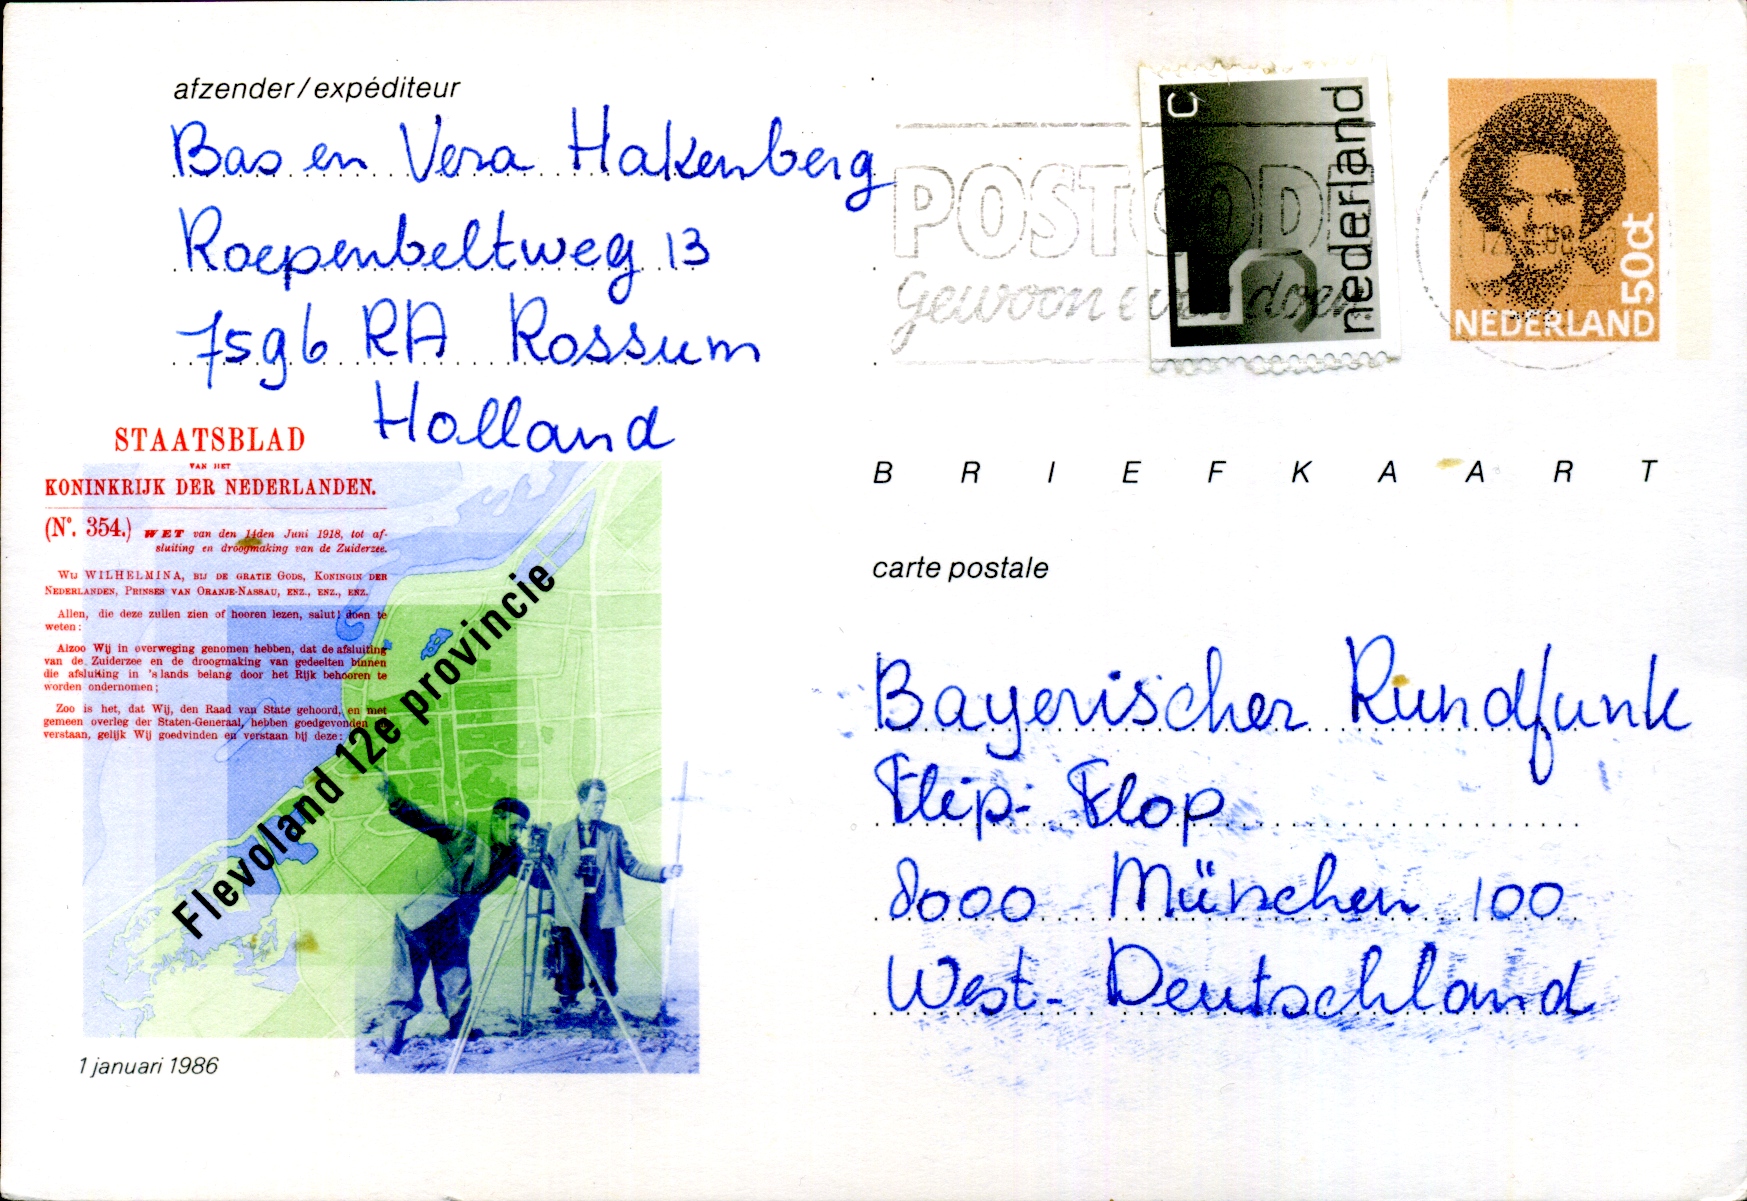 afzender / expéditeur
Bas en Vera Hakenberg
Roepenbeltweg 13
7596 RA Rossum
Holland
POSTCODE
Gewoon even doen
5 C
nederland
50ct
NEDERLAND
STAATSBLAD
VAN HET
KONINKRIJK DER NEDERLANDEN.
(No. 354.) WET van den 14den Juni 1918, tot af-
sluiting en droogmaking van de Zuiderzee.
Wij WILHELMINA, BIJ DE GRATIE GODS, KONINGIN DER
NEDERLANDEN, PRINSES VAN ORANJE-NASSAU, ENZ., ENZ., ENZ.
Allen, die deze zullen zien of hooren lezen, salut! doen te
weten:
Alzoo Wij in overweging genomen hebben, dat de afsluiting
van de Zuiderzee en de droogmaking van gedeelten binnen
die afsluiting in 's lands belang door het Rijk behooren te
worden ondernomen;
Zoo is het, dat Wij, den Raad van State gehoord, en met
gemeen overleg der Staten-Generaal, hebben goedgevonden en
verstaan, gelijk Wij goedvinden en verstaan bij deze:
Flevoland 12e provincie
1 januari 1986
BRIEFKAART
carte postale
Bayerischer Rundfunk
Flip-Flop
8000 München 100
West-Deutschland